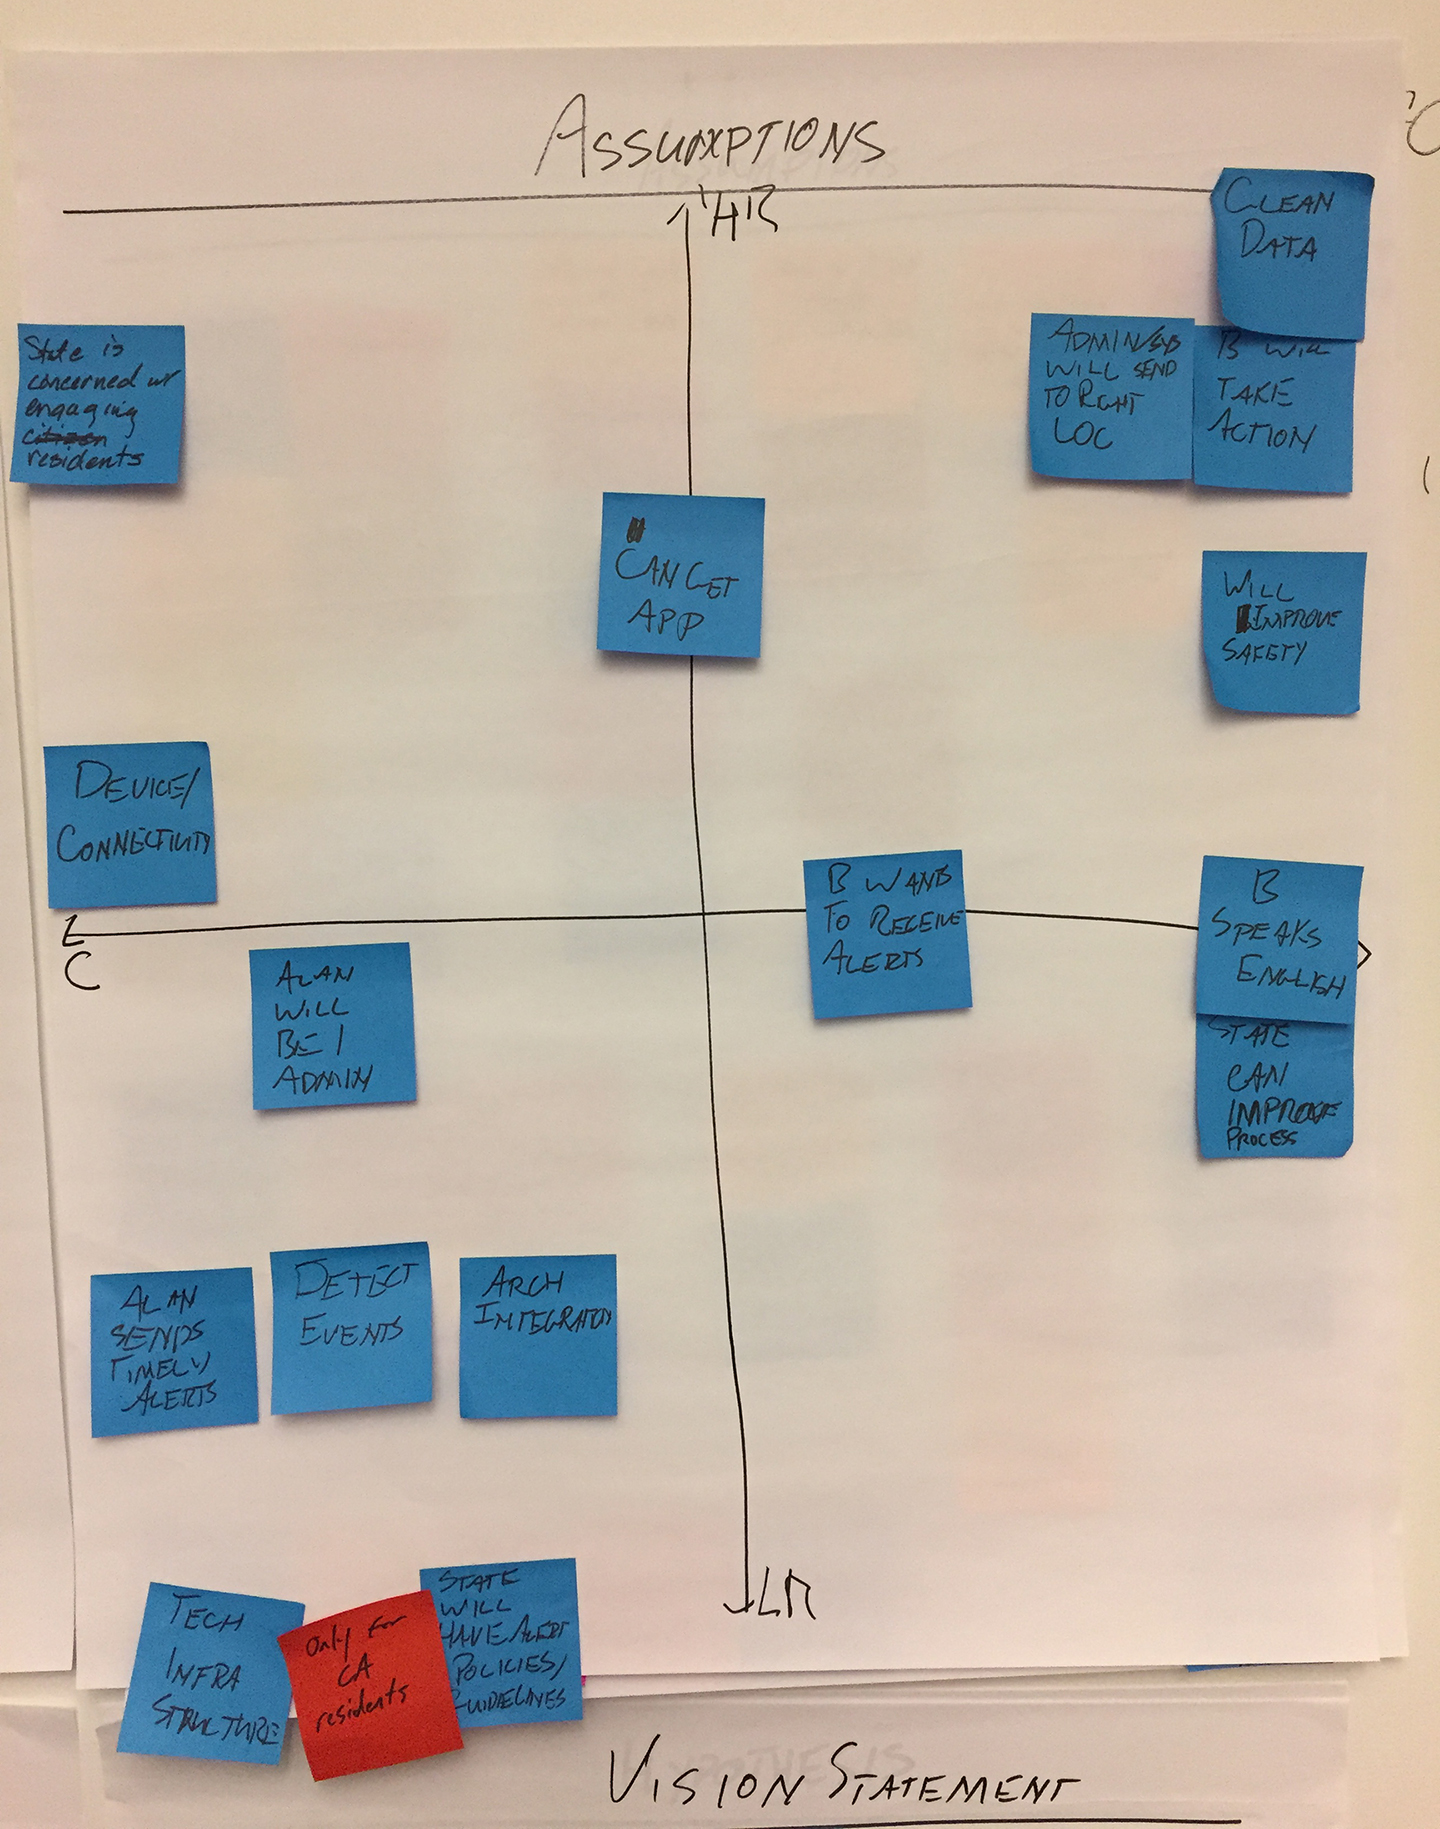 ASSUMPTIONS
HR
CLEAN
DATA
State is
concerned w/
engaging
citizen
residents
ADMIN/SYS
WILL SEND
TO RIGHT
LOC
B WILL
TAKE
ACTION
CAN GET
APP
WILL
IMPROVE
SAFETY
DEVICE/
CONNECTIVITY
B WANTS
TO RECEIVE
ALERTS
B
SPEAKS
ENGLISH
C
ALAN
WILL
BE 1
ADMIN
STATE
CAN
IMPROVE
PROCESS
ALAN
SENDS
TIMELY
ALERTS
DETECT
EVENTS
ARCH
INTEGRATION
LR
TECH
INFRA
STRUCTURE
Only for
CA
residents
STATE
WILL
HAVE ALERT
POLICIES/
GUIDELINES
VISION STATEMENT